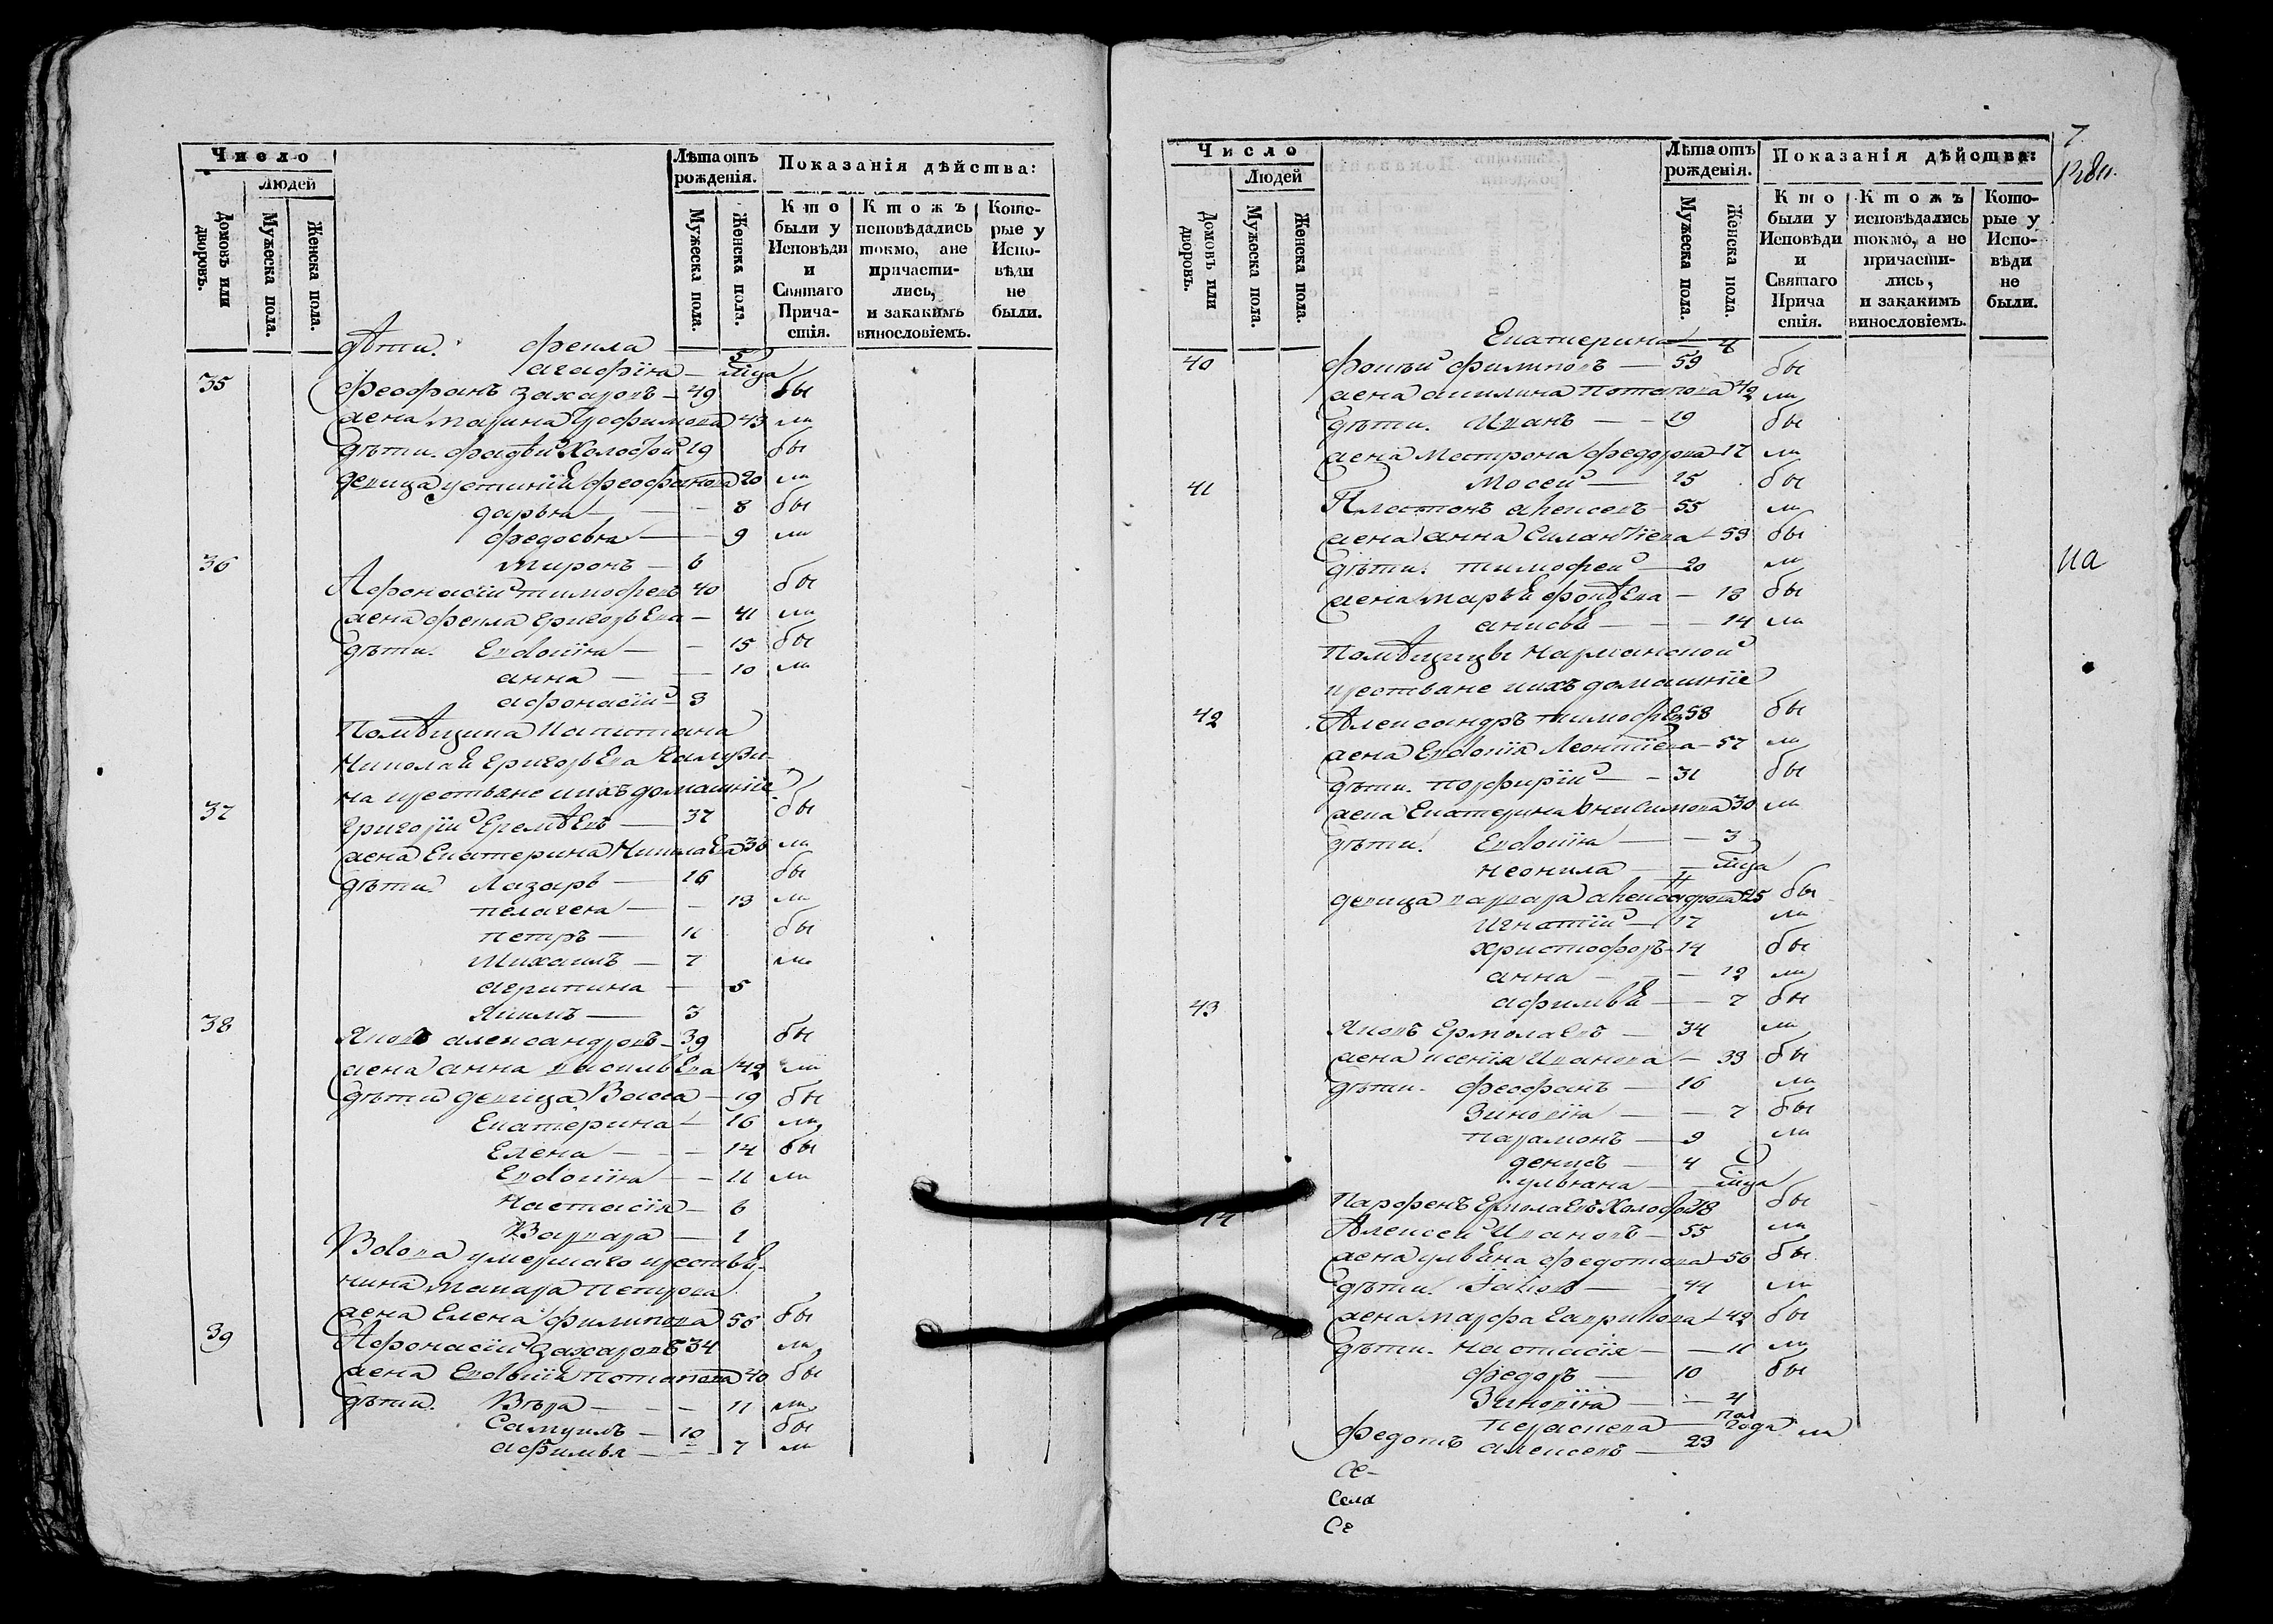 Число
Людей
Домовъ или дворовъ.
Мужеска пола.
Женска пола.
Лѣта отъ рожденія.
Мужеска пола.
Женска пола.
Показанія дѣйства:
Кто были у Исповѣди и Святаго Причастія.
Ктожъ исповѣдались токмо, а не причастились, и закакимъ винословіемъ.
Которые у Исповѣди не были.
дѣти. фекла — 5
агафіа — мца
35 Феофанъ Захаровъ — 49 бы
жена Марина 43 ли
дѣти. фадѣй Холостой 19 бы
девица устиніа феофанова 20 ли
дарьа — 8 бы
федосьа — 9 ли
Миронъ — 6
36 Афонасій тимофеевъ 40 бы
жена фекла григорьева — 41 ли
дѣти. Евдокіа — 15 бы
анна — 10 ли
афонасій — 3
Помѣщика Капитана
Николая григорьева
на крестьяне ихъ домашніе
37 григорій Еремѣевъ — 37 бы
жена Екатерина Николаева 36 ли
дѣти. Лазарь — 16 бы
пелагеа — 13 ли
петръ — 11 бы
Михаилъ — 7 ли
агрипина — 5
Якимъ — 3
38 Яковъ александровъ — 39 бы
жена анна васильева 42 ли
дѣти девица Васса — 19 бы
Екатерина — 16 ли
Елена — 14 бы
Евдокіа — 11 ли
Настасіа — 6
Варвара — 1
Вдова умершаго крестья-
нина Макара Петрова
жена Елена филипова 56 бы
39 Афонасій Захаровъ 34 ли
жена Евдокіа потапова 40 бы
дѣти. Вѣра — 11 ли
Самуилъ — 10 бы
афимьа — 7 ли
7
Число
Людей
Домовъ или дворовъ.
Мужеска пола.
Женска пола.
Лѣта отъ рожденія.
Мужеска пола.
Женска пола.
Показанія дѣйства:
Кто были у Исповѣди и Святаго Причастія.
Ктожъ исповѣдались токмо, а не причастились, и закакимъ винословіемъ.
Которые у Исповѣди не были.
Екатерина — 4
40 Фокѣй филиповъ — 59 бы
жена акилина Потапова 42 ли
дѣти. Иванъ — 19 бы
жена Матрона федорова 17 ли
Мосей — 15 бы
41 Платонъ алексеевъ 55 ли
жена анна Силантіева 59 бы
дѣти. тимофей — 20 ли
жена марьа фокѣева — 18 бы
анисьа — 14 ли
Помѣщицы
крестьяне ихъ домашніе
42 Александръ тимофѣевъ 58 бы
жена Евдокія Леонтіева — 57 ли
дѣти. порфирій — 31 бы
жена Екатерина Онисимова 30 ли
дѣти. Евдокіа — 3
неонила — мца
девица варвара александрова 25 бы
Игнатій — 17 ли
Христофоръ — 14 бы
анна — 12 ли
афимьа — 7 бы
43 Яковъ Ермолаевъ — 34 ли
жена ксенія Иванова — 33 бы
дѣти. феофанъ — 16 ли
Зиновіа — 7 бы
парамонъ — 9 ли
денисъ — 4
ульяна — мца
Парфенъ Ермолаевъ Холостой 38 бы
44 Алексей Ивановъ — 55 ли
жена ульяна федотова 56 бы
дѣти. Іаковъ — 44 ли
жена марфа гаврилова 42 бы
дѣти. Настасіа — 11 ли
федоръ — 10 бы
Зиновіа — 4
параскева — пол года
федотъ алексеевъ — 23 ли
на
Се-
Села
Се